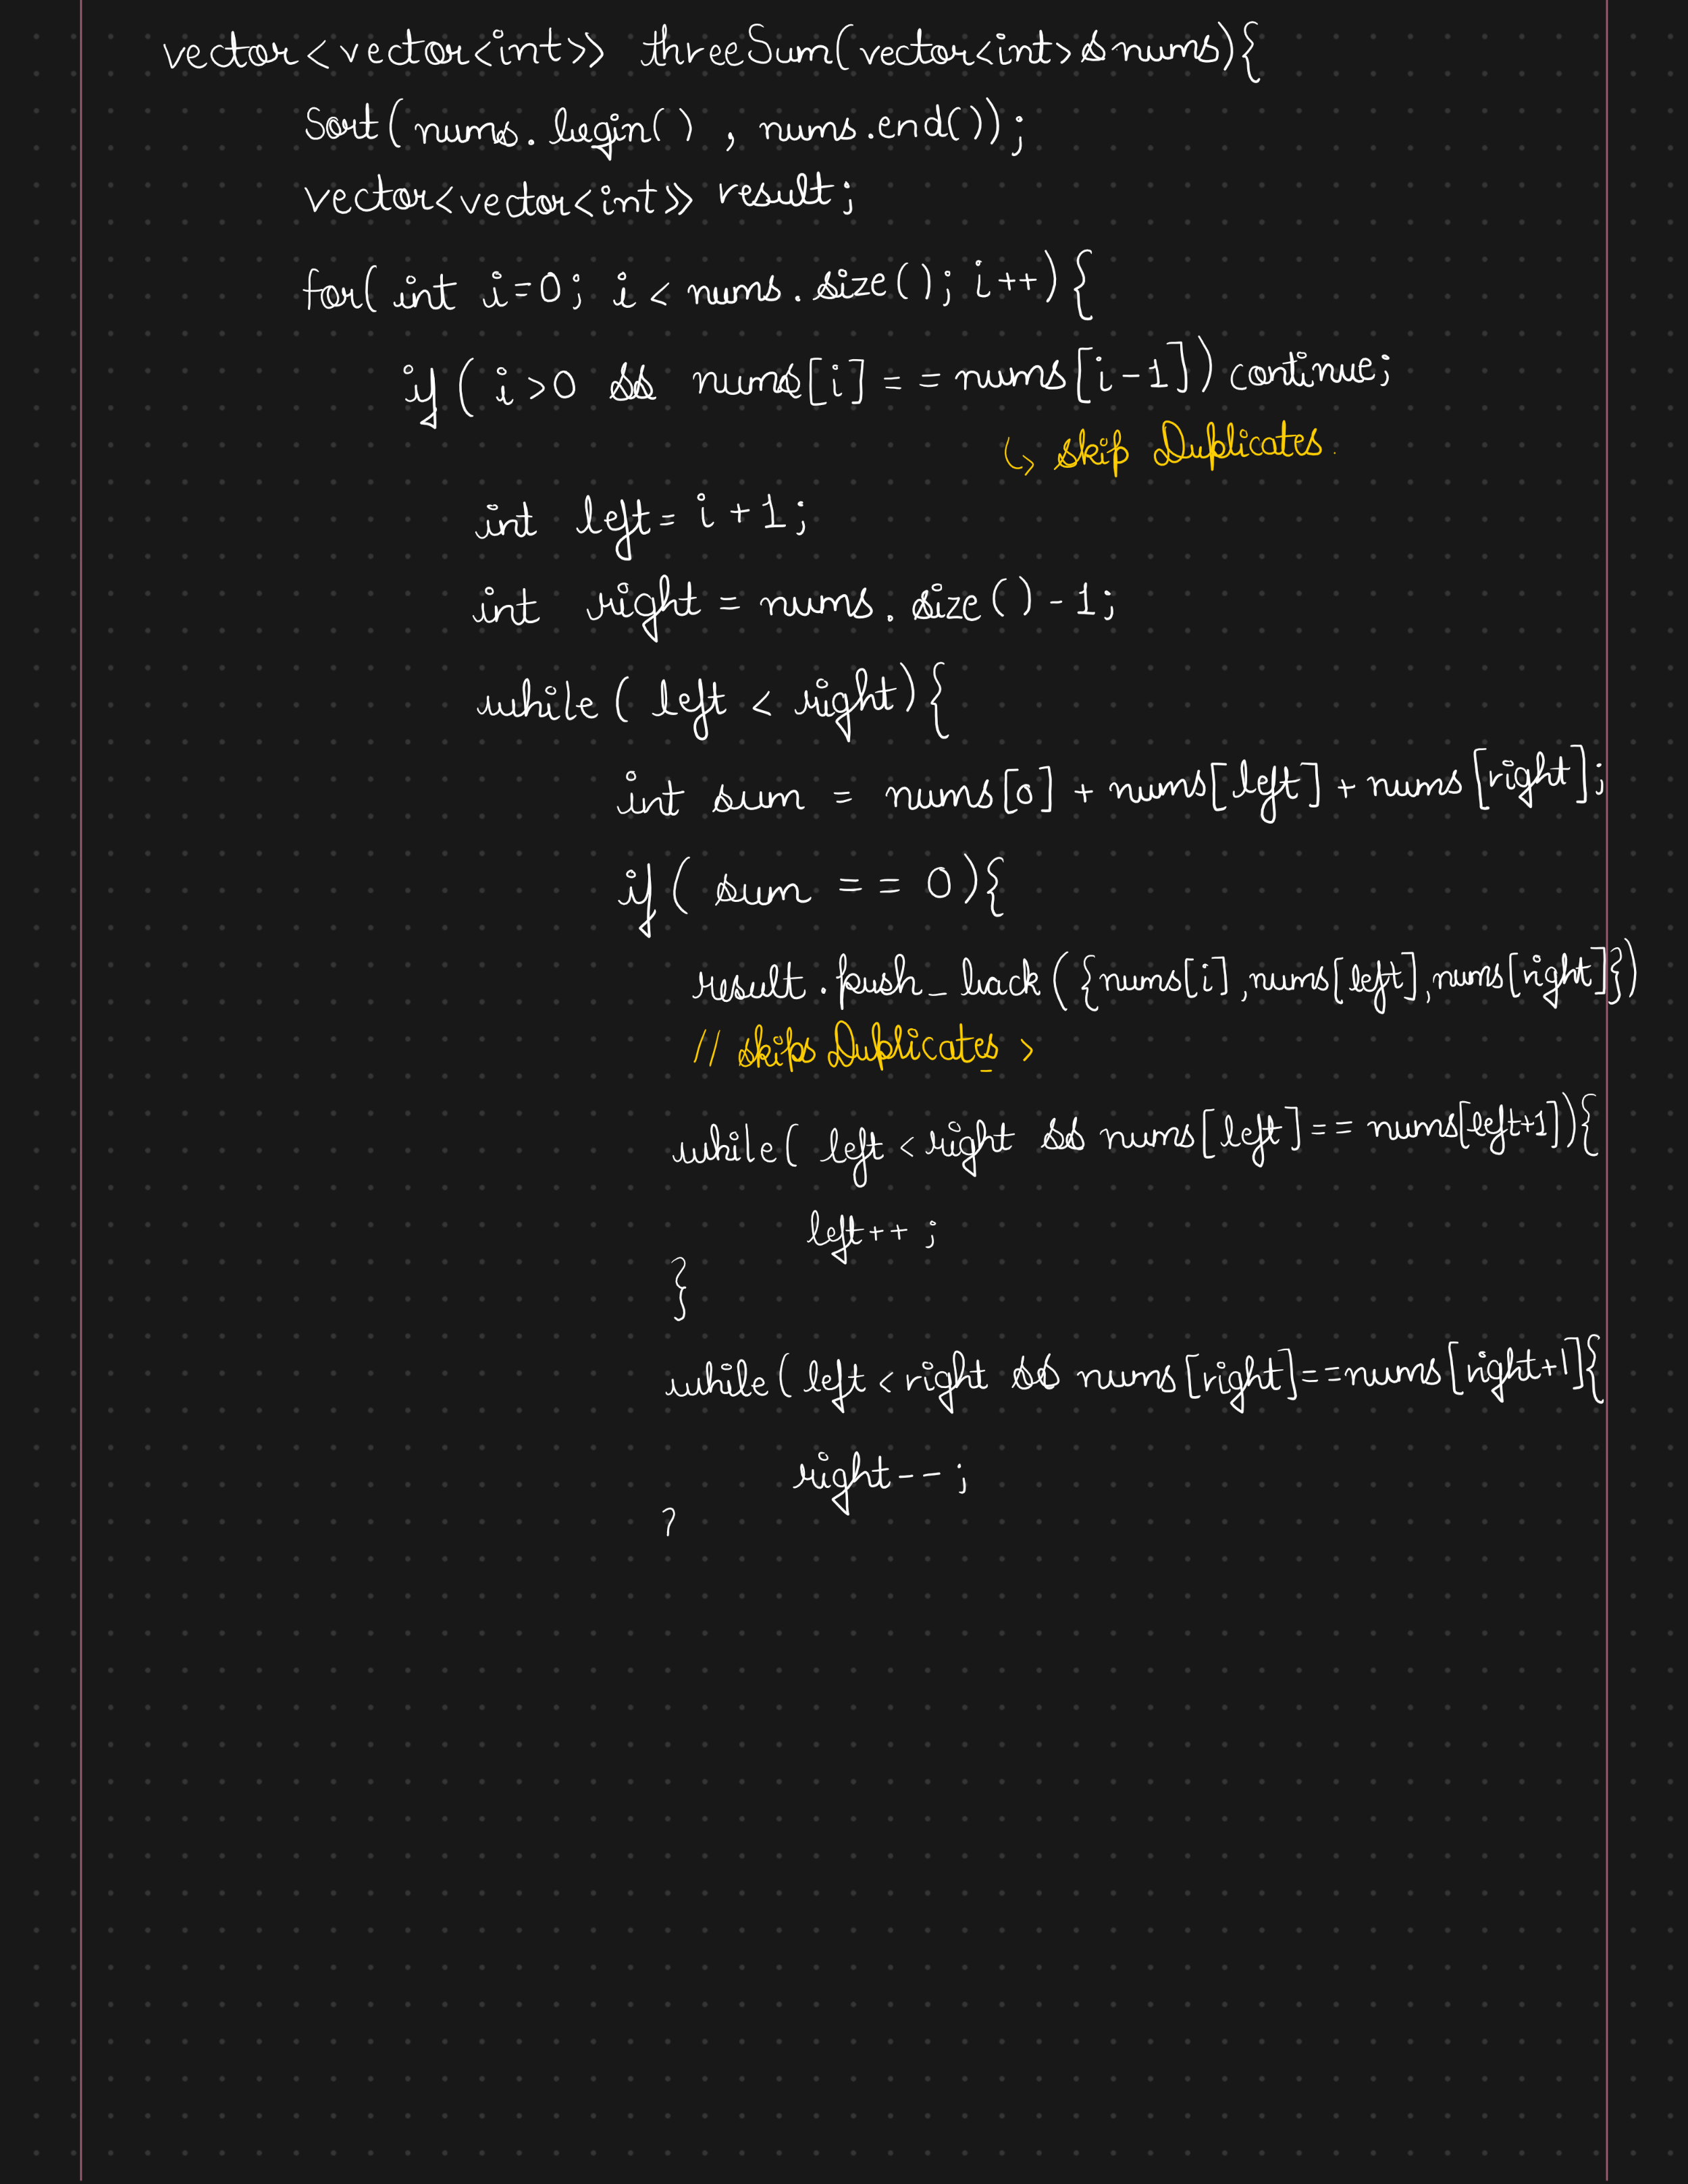 vector<vector<int>> threeSum(vector<int>& nums){
sort(nums.begin() , nums.end());
vector<vector<int>> result;
for( int i=0; i < nums.size(); i++){
if ( i>0 && nums[i] == nums[i-1]) continue;
↳ skip Duplicates.
int left = i + 1;
int right = nums.size() - 1;
while ( left < right){
int sum = nums[0] + nums[left] + nums[right];
if ( sum == 0){
result.push_back({nums[i],nums[left],nums[right]})
// skips Duplicates >
while( left < right && nums[left] == nums[left+1]){
left++ ;
}
while( left < right && nums[right]==nums[right+1]{
right-- ;
?